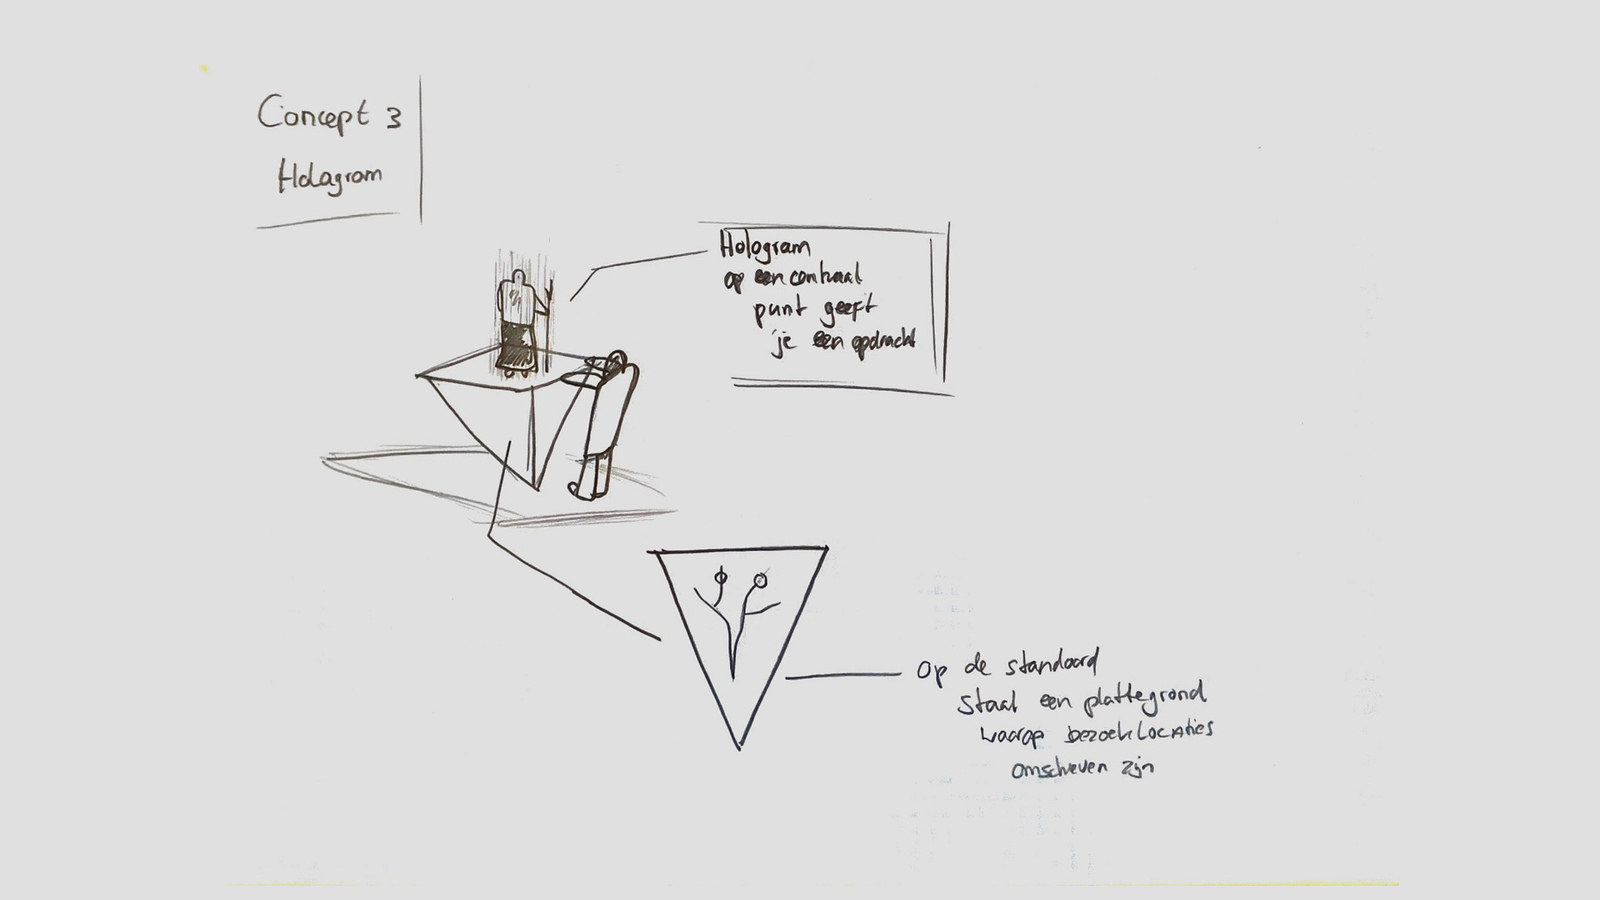 Concept 3
Hologram
Hologram
op een centraal
punt geeft
je een opdracht
Op de standaard
staat een plattegrond
waarop bezoeklocaties
omschreven zijn